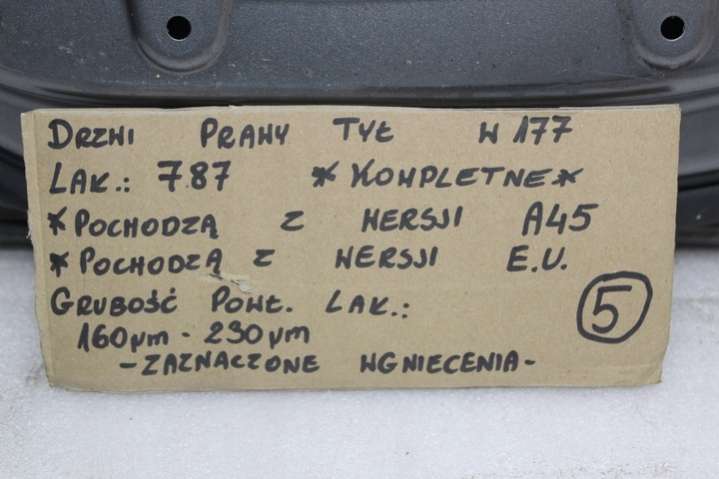 DRZWI PRAWY TYŁ W177
LAK.: 787 *KOMPLETNE*
*POCHODZĄ Z WERSJI A45
*POCHODZĄ Z WERSJI E.U.
GRUBOŚĆ POWŁ. LAK.:
160µm - 230µm
-ZAZNACZONE WGNIECENIA-
5